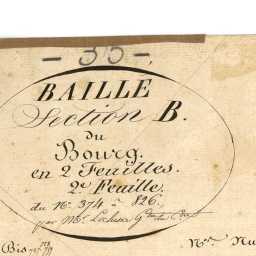 - 35 -
BAILLE
Section B.
du
Bourg.
en 2 Feuilles.
2e Feuille.
du No. 374 à 826.
par Mr.
Bis
Nu